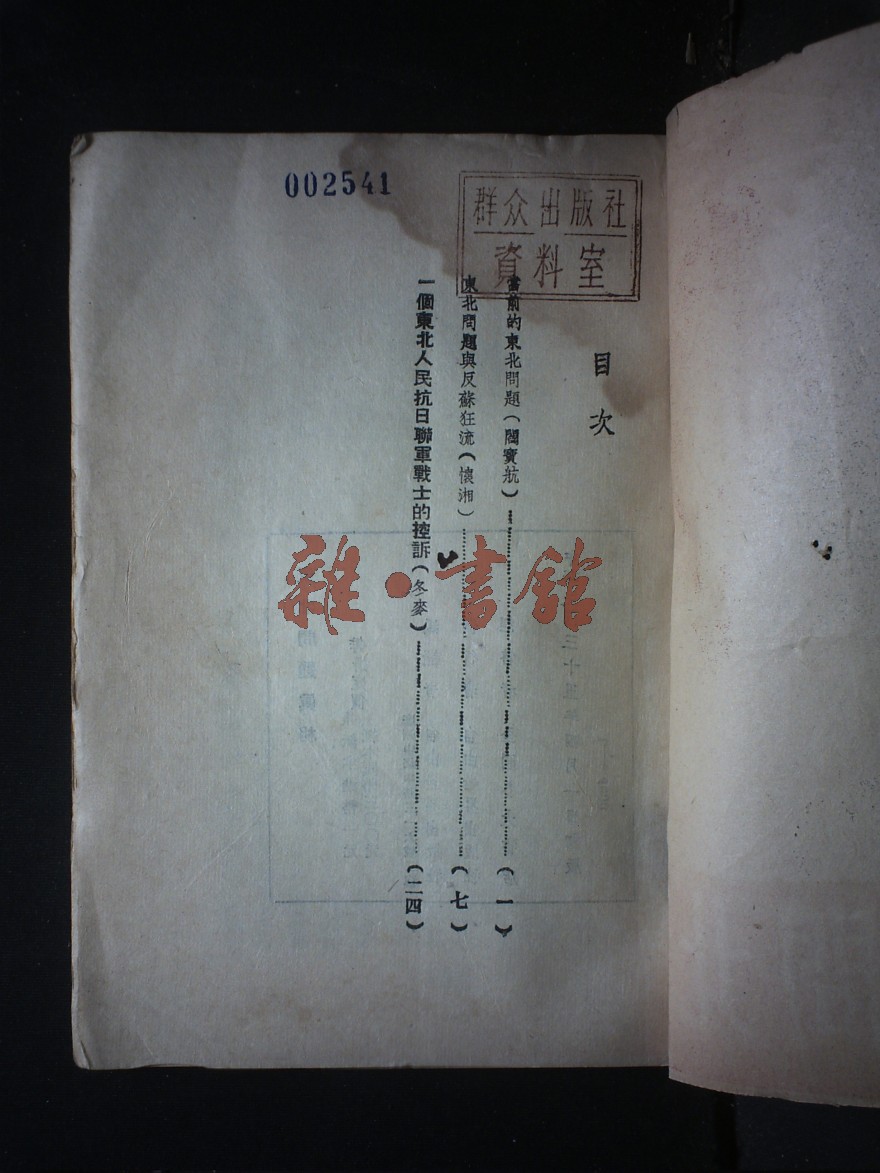 002541
群众出版社
資料室
目次
當前的東北問題(閻寶航)………(一)
東北問題與反蘇狂流(懷湘)………(七)
一個東北人民抗日聯軍戰士的控訴(冬麥)………(二四)
雜·書館